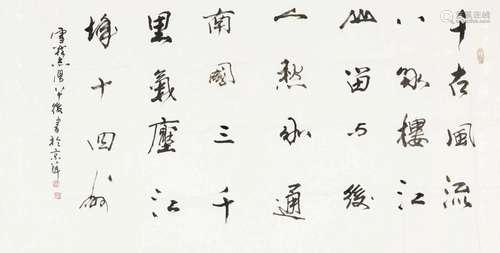 千古風流
八詠樓江
山留与後
人愁水通
南國三千
里氣壓江
城十四州
後書於京